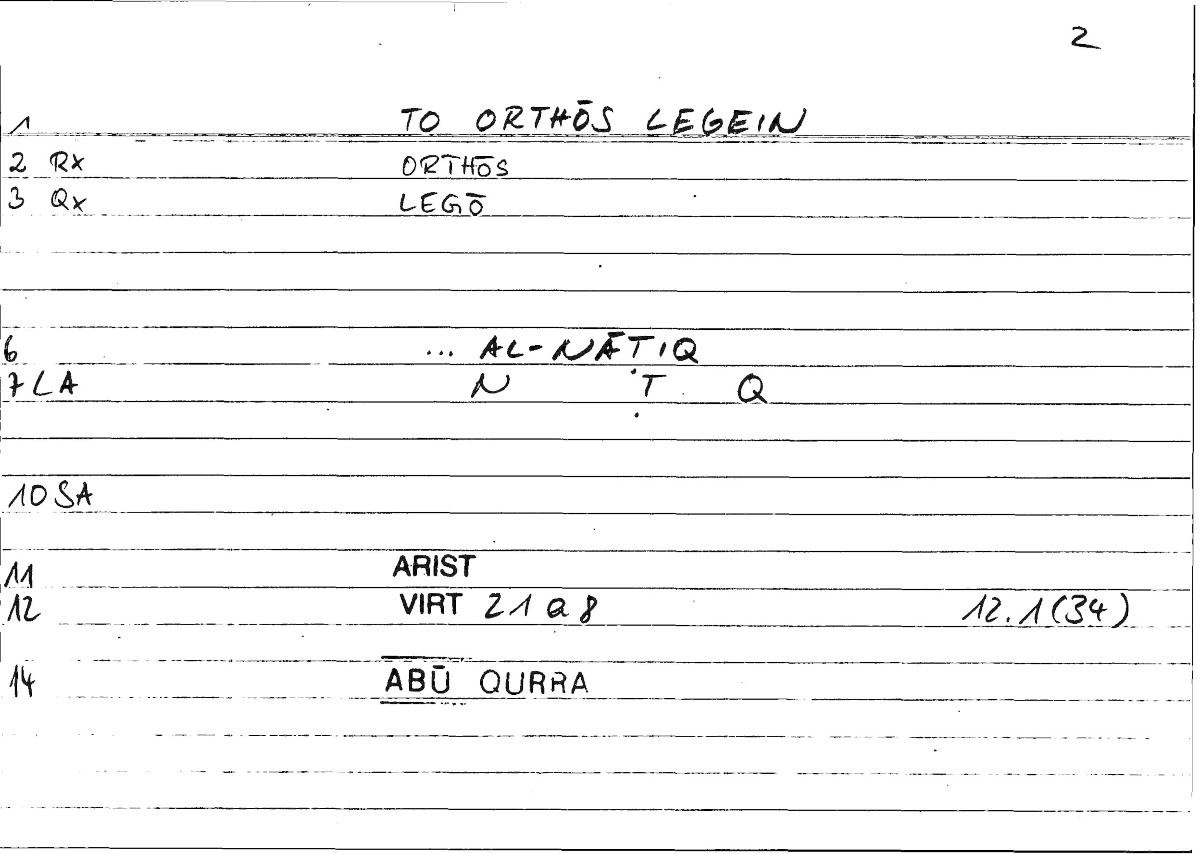 2
1 TO ORTHŌS LEGEIN
2 Rx ORTHŌS
3 Qx LEGŌ
6 ... AL-NĀṬIQ
7 LA N Ṭ Q
10 SA
11 ARIST
12 VIRT 21 a 8 12.1(34)
14 ABŪ QURRA